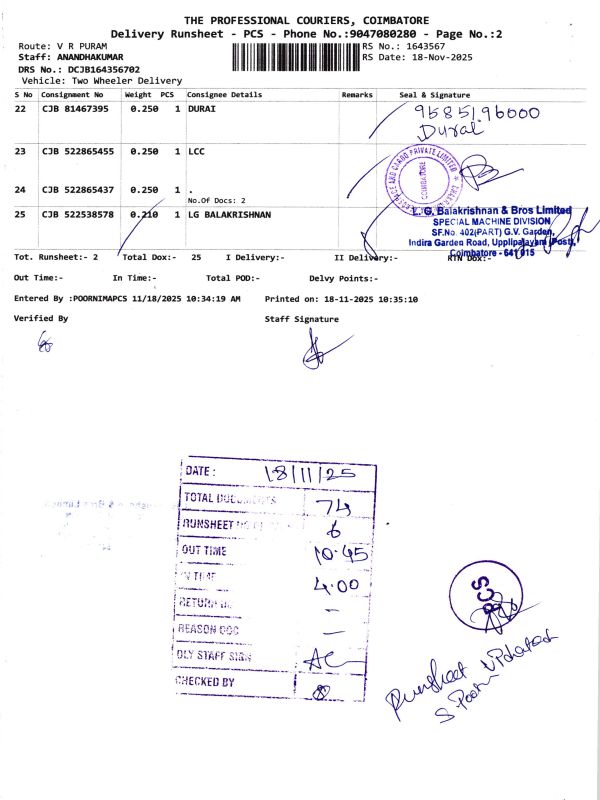 THE PROFESSIONAL COURIERS, COIMBATORE
Delivery Runsheet - PCS - Phone No.:9047080280 - Page No.:2
Route: V R PURAM
RS No.: 1643567
Staff: ANANDHAKUMAR
RS Date: 18-Nov-2025
DRS No.: DCJB164356702
Vehicle: Two Wheeler Delivery
S No Consignment No Weight PCS Consignee Details Remarks Seal & Signature
22 CJB 81467395 0.250 1 DURAI
95851.96000
Durai
23 CJB 522865455 0.250 1 LCC
COIMBATORE
24 CJB 522865437 0.250 1 .
No.Of Docs: 2
25 CJB 522538578 0.210 1 LG BALAKRISHNAN
L. G. Balakrishnan & Bros Limited
SPECIAL MACHINE DIVISION
SF.No. 402(PART) G.V. Garden,
Indira Garden Road, Upplipalayam (Post),
Coimbatore - 641 015
Tot. Runsheet:- 2 Total Dox:- 25 I Delivery:- II Delivery:- RTN Dox:-
Out Time:- In Time:- Total POD:- Delvy Points:-
Entered By :POORNIMAPCS 11/18/2025 10:34:19 AM Printed on: 18-11-2025 10:35:10
Verified By Staff Signature
DATE : 18/11/25
TOTAL DOCUMENTS 74
RUNSHEET NO 6
OUT TIME 10.45
IN TIME 4.00
RETURN –
REASON DOC –
DLY STAFF SIGN
CHECKED BY
PCS
Runsheet Updated